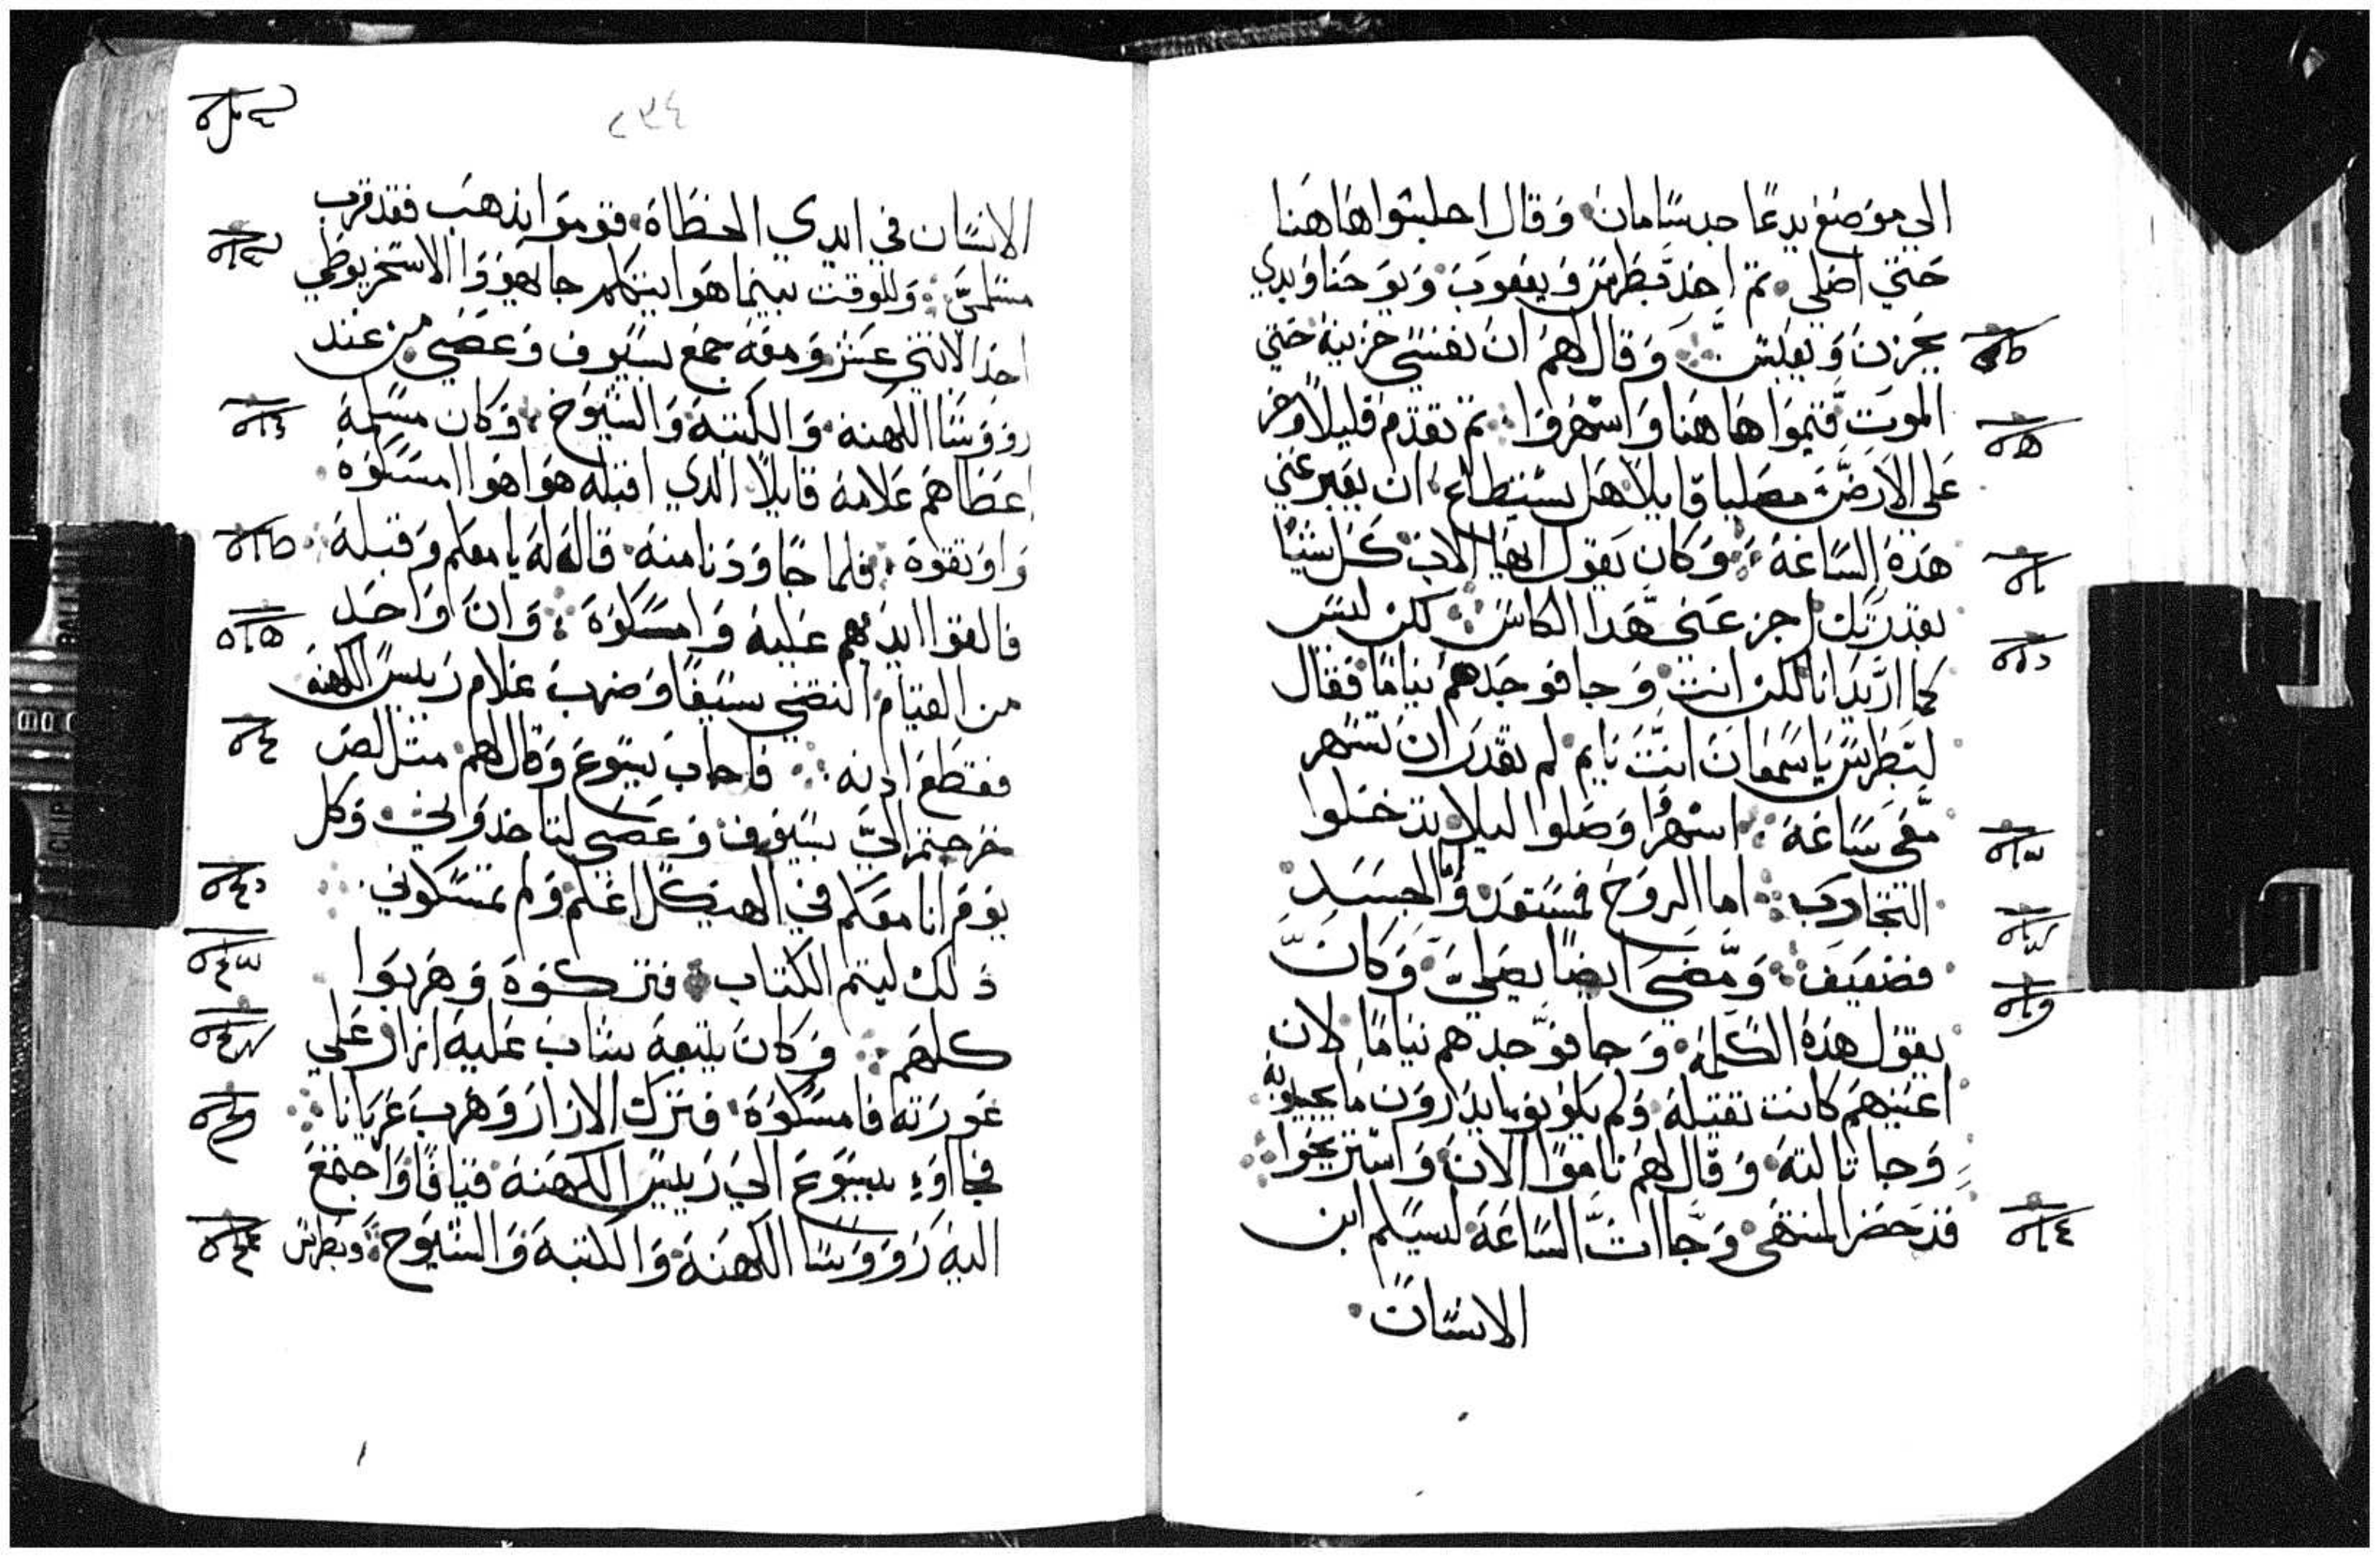 الي موضع يدعا جدسامان وقال احلسوا هاهنا
حتي اصلي ثم اخذ بطرس ويعقوب ويوحنا وبدي
يحزن ويعبس وقال لهم ان نفسي حزينة حتي
الموت فتموا هاهنا واسهروا ثم تقدم قليلا وخر
علي الارض مصليا قايلا هل يستطاع ان يعبر عني
هذه الساعة وكان يقول ايها الاب كل شيا
بقدرتك اجز عني هدا الكاس لكن ليس
كما اريد انا لكن انت وجا فوجدهم نياما فقال
لبطرس ياسمعان انت نايم لم تقدر ان تسهر
معي ساعة اسهروا وصلوا ليلا تدخلوا
التجارب اما الروح فمستعد واما الجسد
فضعيف ومضي ايضا يصلي وكان
يقول هذه الكلمة وجا فوجدهم نياما لان
اعينهم كانت تقيلة ولم يكونوا يدرون ما يجيبوبه
وجا تالتة وقال لهم ناموا الان واستريحوا
قد حضر المنتهي وجاات الساعة ليسلم ابن
الانسان
٢٣٤
الانسان في ايدي الخطاة قوموا نذهب فقد قرب
مسلمي وللوقت بينما هوا يتكلم جا يهودا الاسخريوطي
احد الاتني عشر ومعه جمع بسيوف وعصي من عند
رووسا الكهنة والكتبة والشيوخ وكان مسلمه
اعطاهم علامة قايلا الدي اقبله هوا هوا امسكوه
واوتقوه فلما جا ودنا منه قال له يا معلم وقبله
فالقوا ايديهم عليه وامسكوه وان واحد
من القيام انتضي سيفا وضرب غلام رييس الكهنة
فقطع ادنه فاجاب يسوع وقال لهم متل لص
خرجتم الي بسيوف وعصي لتاخدوني وكل
يوم انا معكم في الهيكل اعلم ولم تمسكوني
ذلك ليتم الكتاب فتركوه وهربوا
كلهم وكان يتبعه شاب عليه ازار علي
عورته فامسكوه فترك الازار وهرب عريانا
فجااوء بيسوع الي رييس الكهنة قيافا واجتمع
اليه رووسا الكهنة والكتبة والشيوخ وبطرس